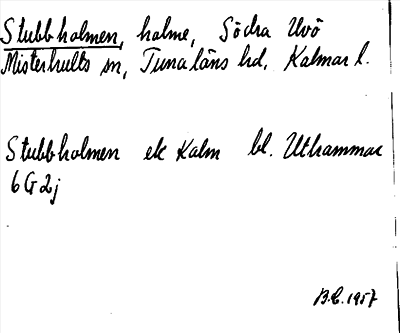 Stubbholmen, holme, Södra Uvö
Misterhults sn, Tunaläns hd, Kalmar l.
Stubbholmen ek Kalm bl. Uthammar
6G2j
B.E. 1957